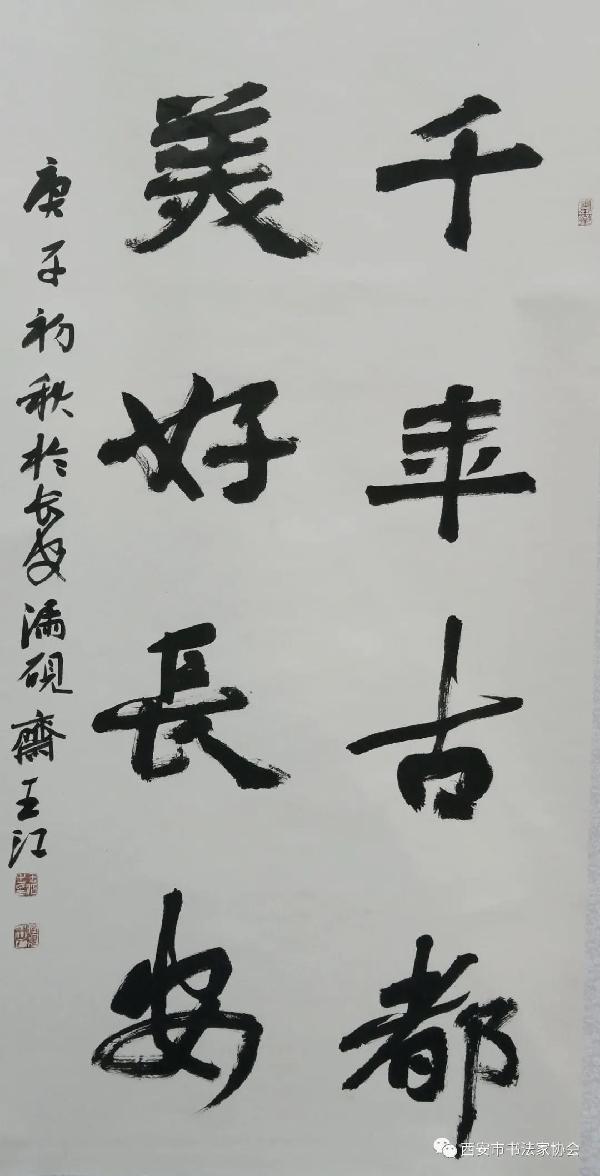 千年古都
美好長安
庚子初秋於长安濡砚齋王江
西安市书法家协会